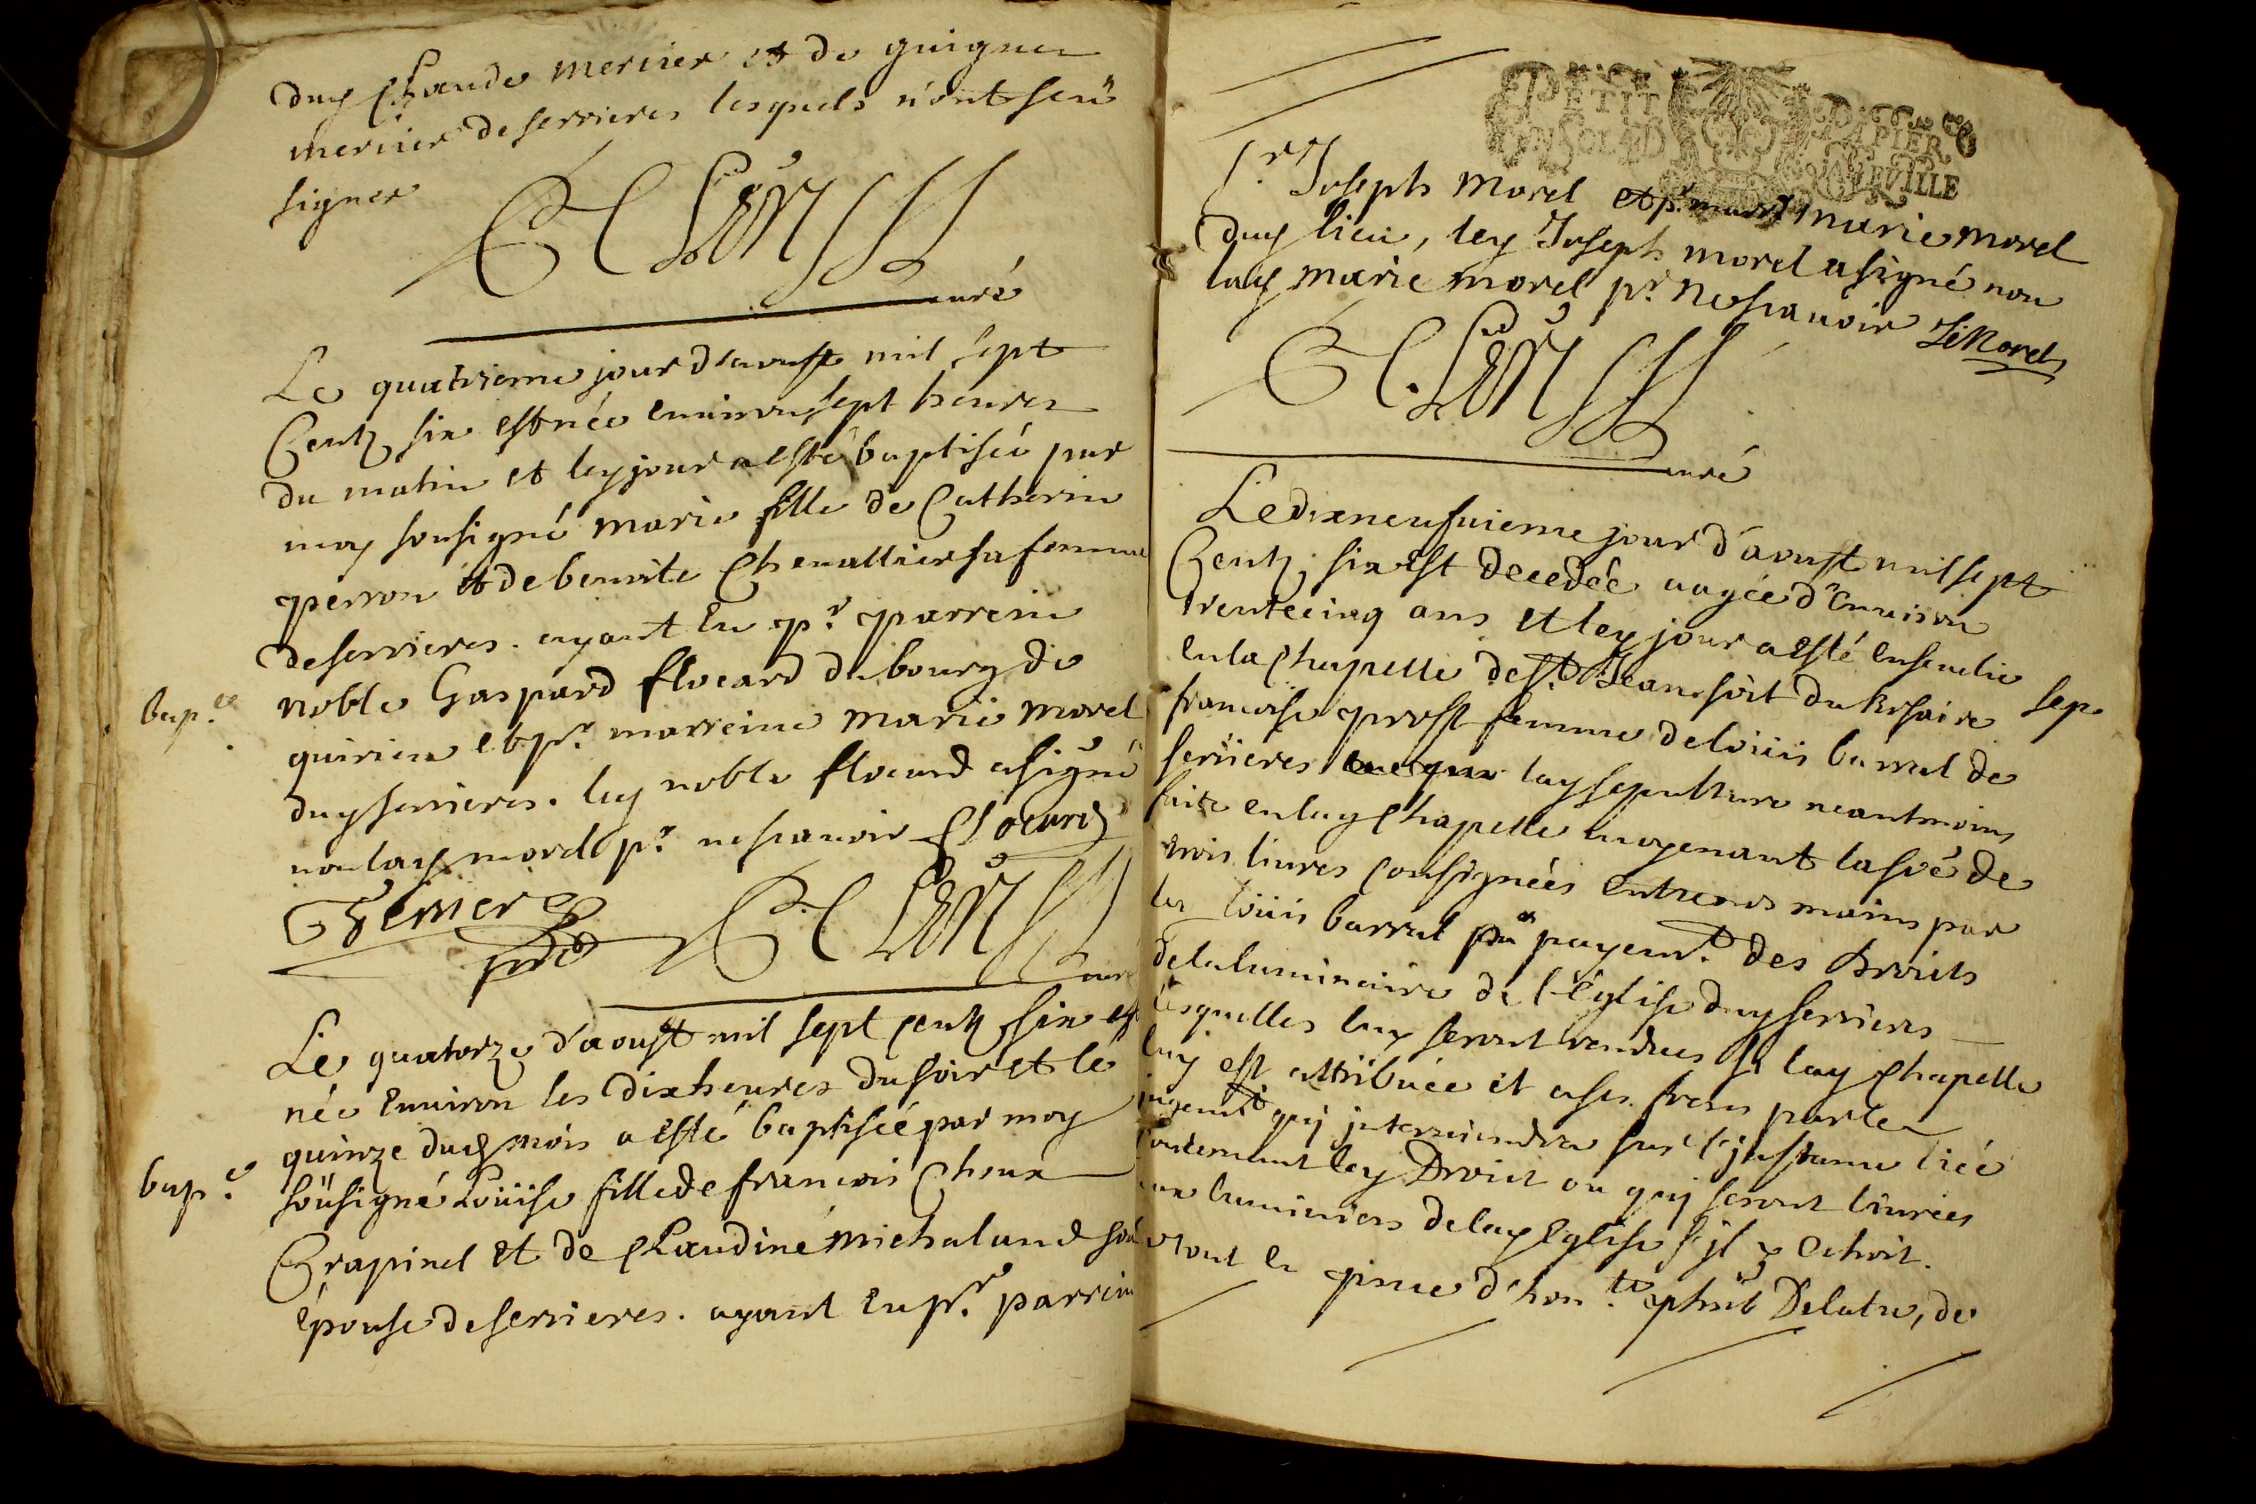 duq Claude mernier et de guigner
mernier de serrieres lesquels n'ont sceü
signer
curé
Le quatrieme jour d'aoust mil sept
Centz six est née environ sept heures
du matin et leq jour a esté baptiséé par
moy sousigné marie fille de Catherin
perron et de benoite Chevallier sa femme
de serrieres. ayant eu pr. parrein
noble Gaspard flocard du bourg de
quirieu et pr. marreine marie morel
duq serrieres. leq noble flocard a signé
non laq morel pr. ne scavoir flocard
bap.ee
curé
Le quatorze d'aoust mil sept centz six est
née environ les dix heures du soir et le
quinze duq mois a esté baptiséé par moy
soûsigné Loüise fille de francois Choux
Crapinel et de Claudine michaland son
épouse de serrieres. ayant eu pr. parrein
bap.e
PETIT PAPIER
UN SOL
Sr. Joseph morel et pr. marie morel
duq lieu, leq Joseph morel a signé non
laq marie morel pr. ne scavoir J Morel
curé
Le dixneufvieme jour d'aoust mil sept
Centz six est decedée aagée d'environ
trentecinq ans et leq jour a esté ensevelie
en la chapelle de st. Jean soit du Rosaire
sep.
francoise prost femme de loüis barral de
serrieres laq sepulture neantmoins
faite en laq chapelle moyenant la sôe de
trois livres consignéés entre nos mains par
led Loüis barral payemt. des Droits
de la luminaire de l'Église duq serrieres
lesquelles luy seront rendues si laq chapelle
luy est attribuée et a ses freres par le
jugemt. quj interviendra sur l'jnstance
leq Droict ou quj seront livrées
aux luminiers de laq Eglise s'jl y echoit.
le tout en pnce d'hon.te phût Delatre, de